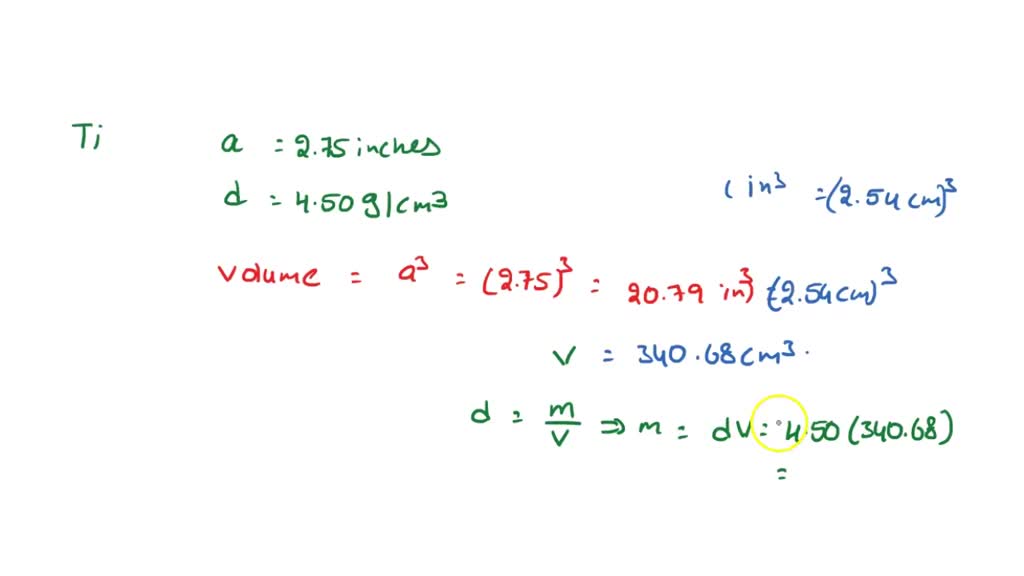 Ti a = 2.75 inches
d = 4.50 g/cm3
( in³ = (2.54 cm)³
volume = a³ = (2.75)³ = 20.79 in³) (2.54 cm)³
V = 340.68 cm³.
d = m/V ⇒ m = dV = 4.50 (340.68)
=